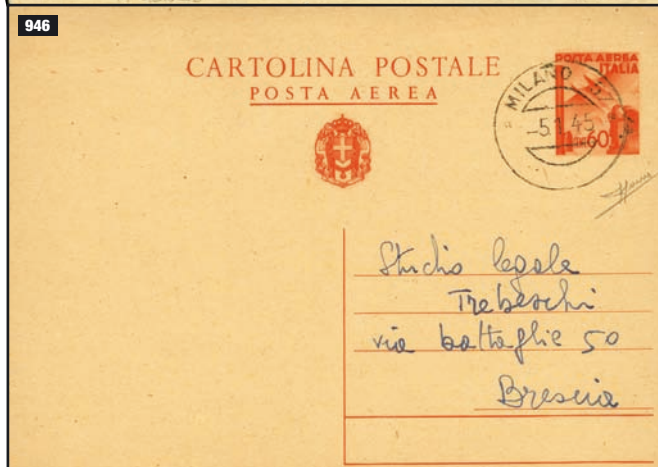 946
CARTOLINA POSTALE
POSTA AEREA
POSTA AEREA
ITALIA
60
MILANO 37
-5.1.45
Studio legale
Trebeschi
via battaglie 50
Brescia